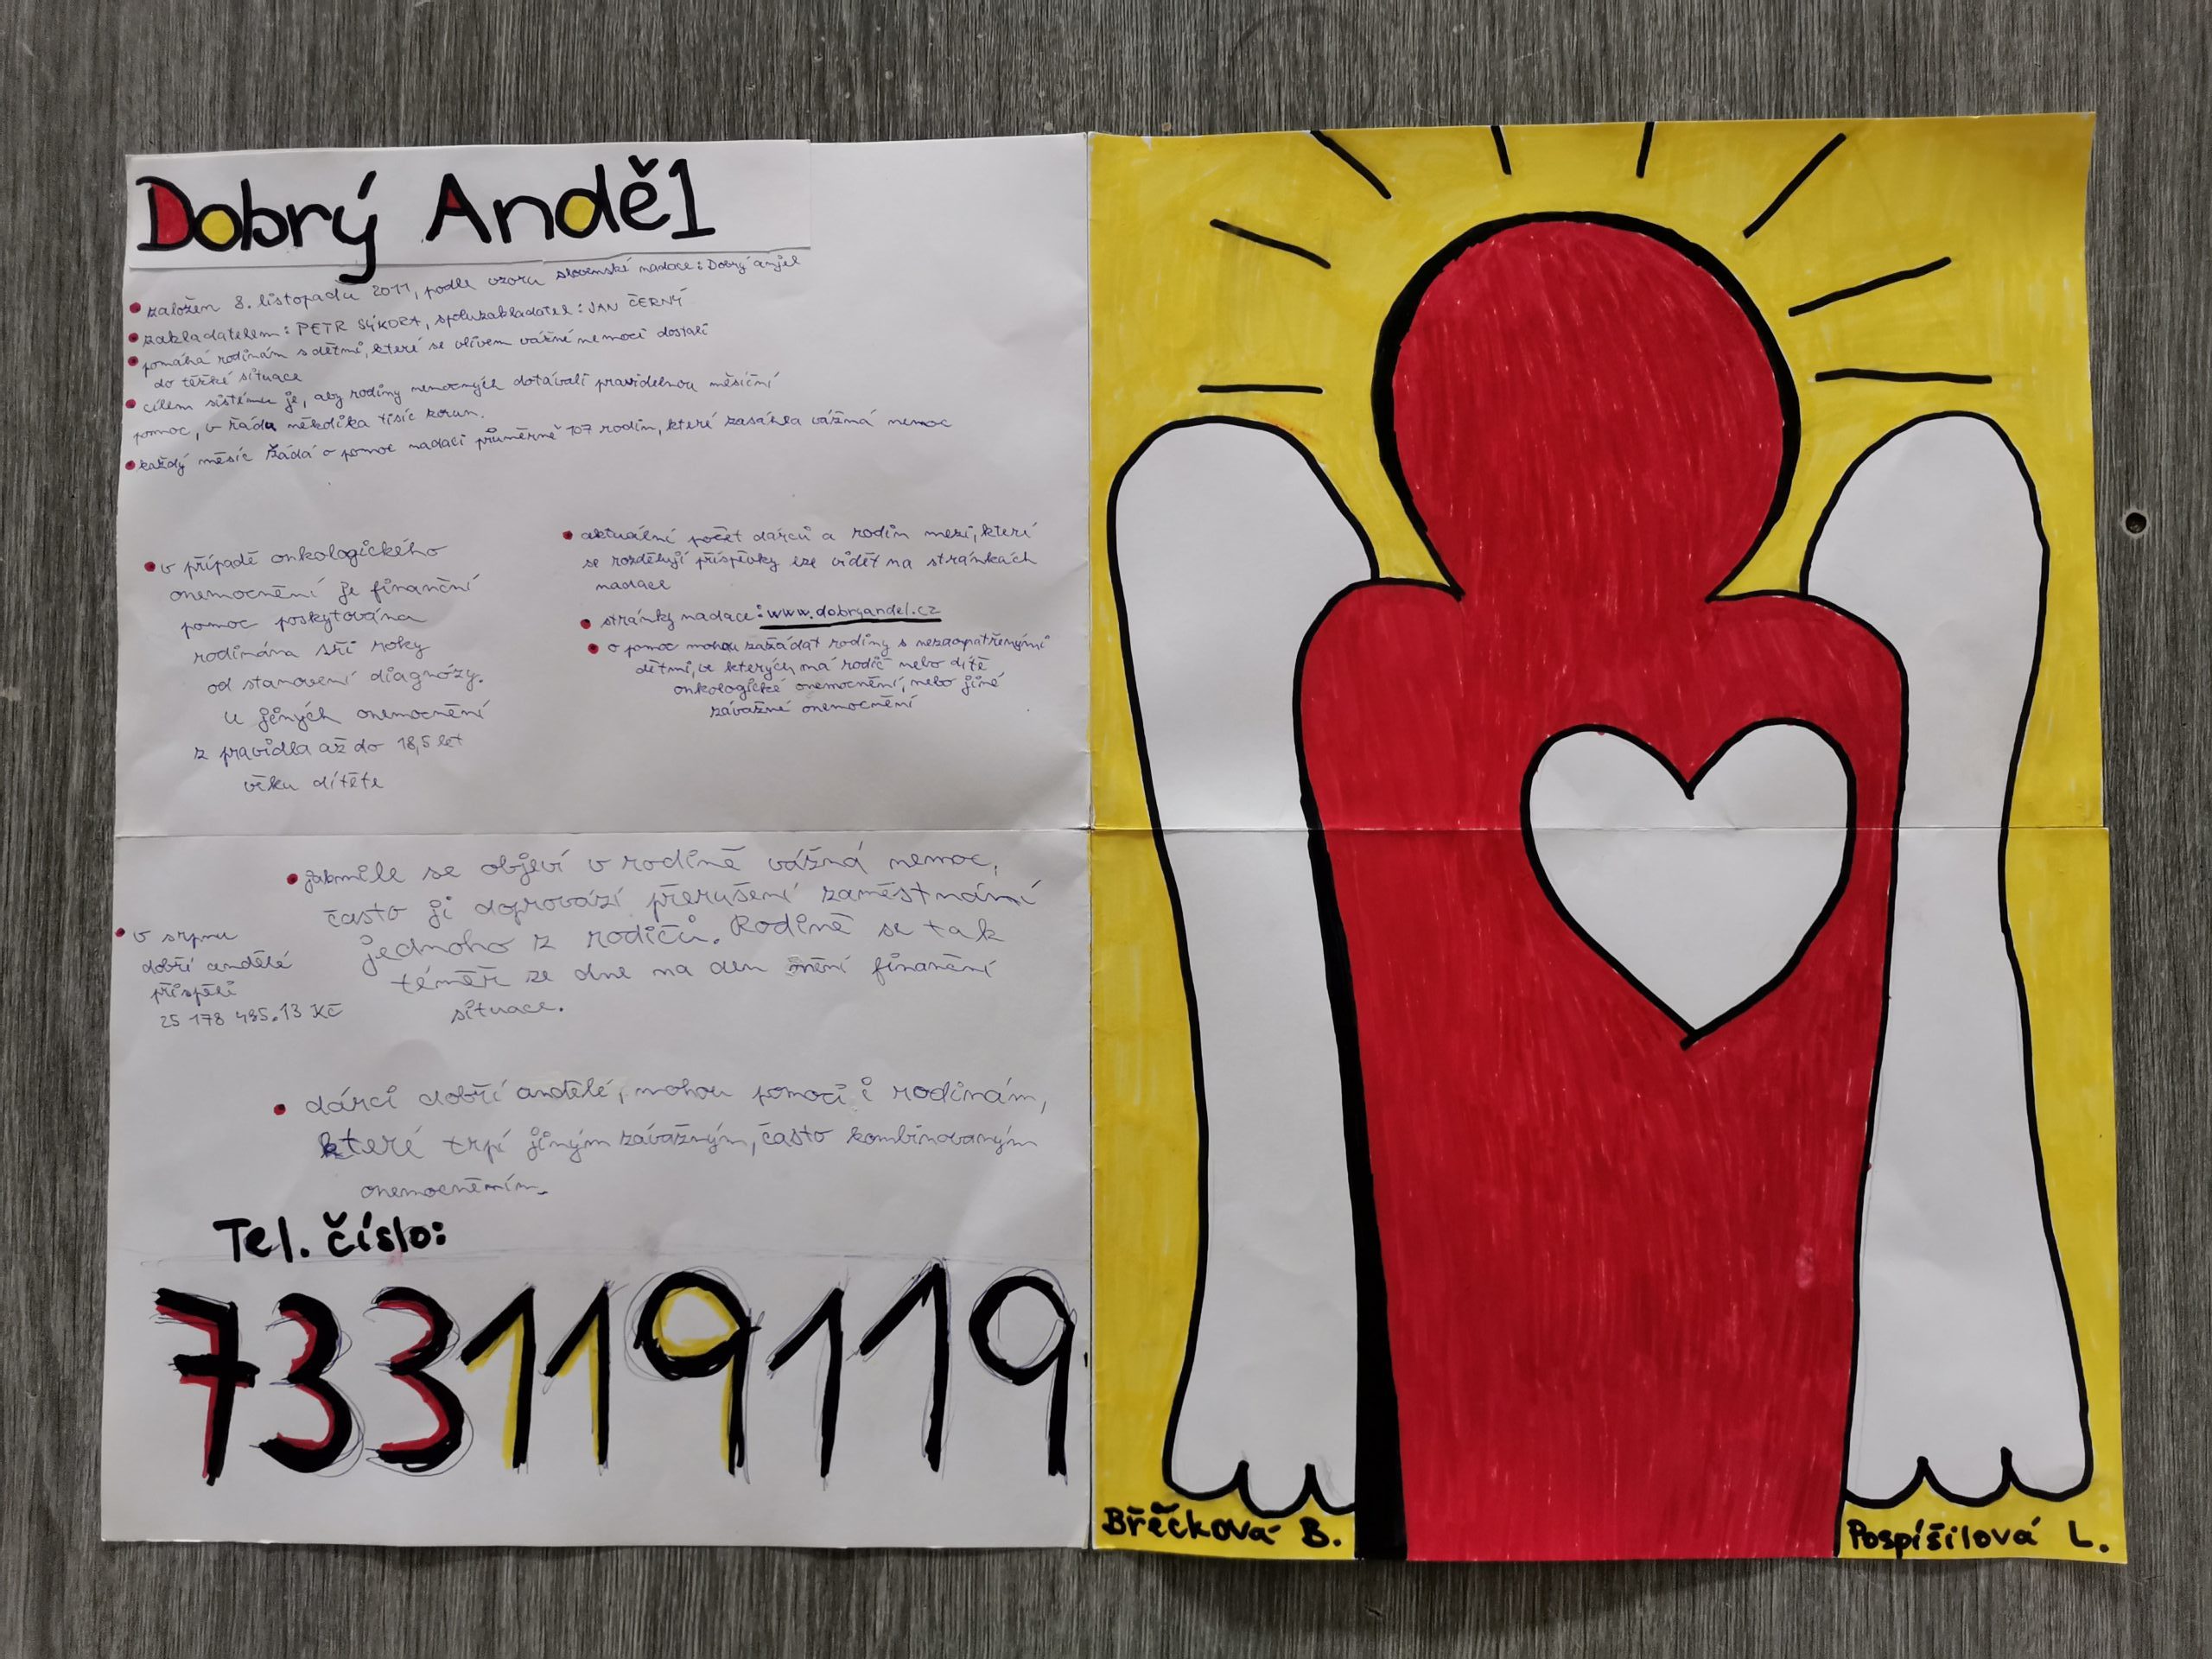 Dobrý Anděl
• založen 8. listopadu 2011, podle vzoru slovenské nadace: Dobrý anjel
• zakladatelem: PETR SÝKORA, spoluzakladatel: JAN ČERNÝ
• pomáhá rodinám s dětmi, které se vlivem vážné nemoci dostali
do těžké situace
• cílem sistému je, aby rodiny nemocných dotávali pravidelnou měsíční
pomoc, v řádu několika tisíc korun.
• každý měsíc žádá o pomoc nadaci průměrně 107 rodin, které zasáhla vážná nemoc
• v případě onkologického
onemocnění je finanční
pomoc poskytována
rodinám tři roky
od stanovení diagnózy.
U jiných onemocnění
z pravidla až do 18,5 let
věku dítěte
• aktuální počet dárců a rodin mezi, kteri
se rozdělují příspěvky lze vidět na stránkách
nadace
• stránky nadace: www.dobryandel.cz
• o pomoc mohou zažádat rodiny s nezaopatřenými
dětmi, ve kterých má rodič nebo dítě
onkologické onemocnění, nebo jiné
závažné onemocnění
• jakmile se objeví v rodině vážná nemoc,
často ji doprovází přerušení zaměstnání
jednoho z rodičů. Rodině se tak
téměř ze dne na den mění finanční
situace.
• v srpnu
dobří andělé
přispěli
25 178 495.13 Kč
• dárci dobří andělé, mohou pomoci i rodinám,
které trpí jiným závažným, často kombinovaným
onemocněním.
Tel. číslo:
733119119
Břěčková B.
Pospíšilová L.